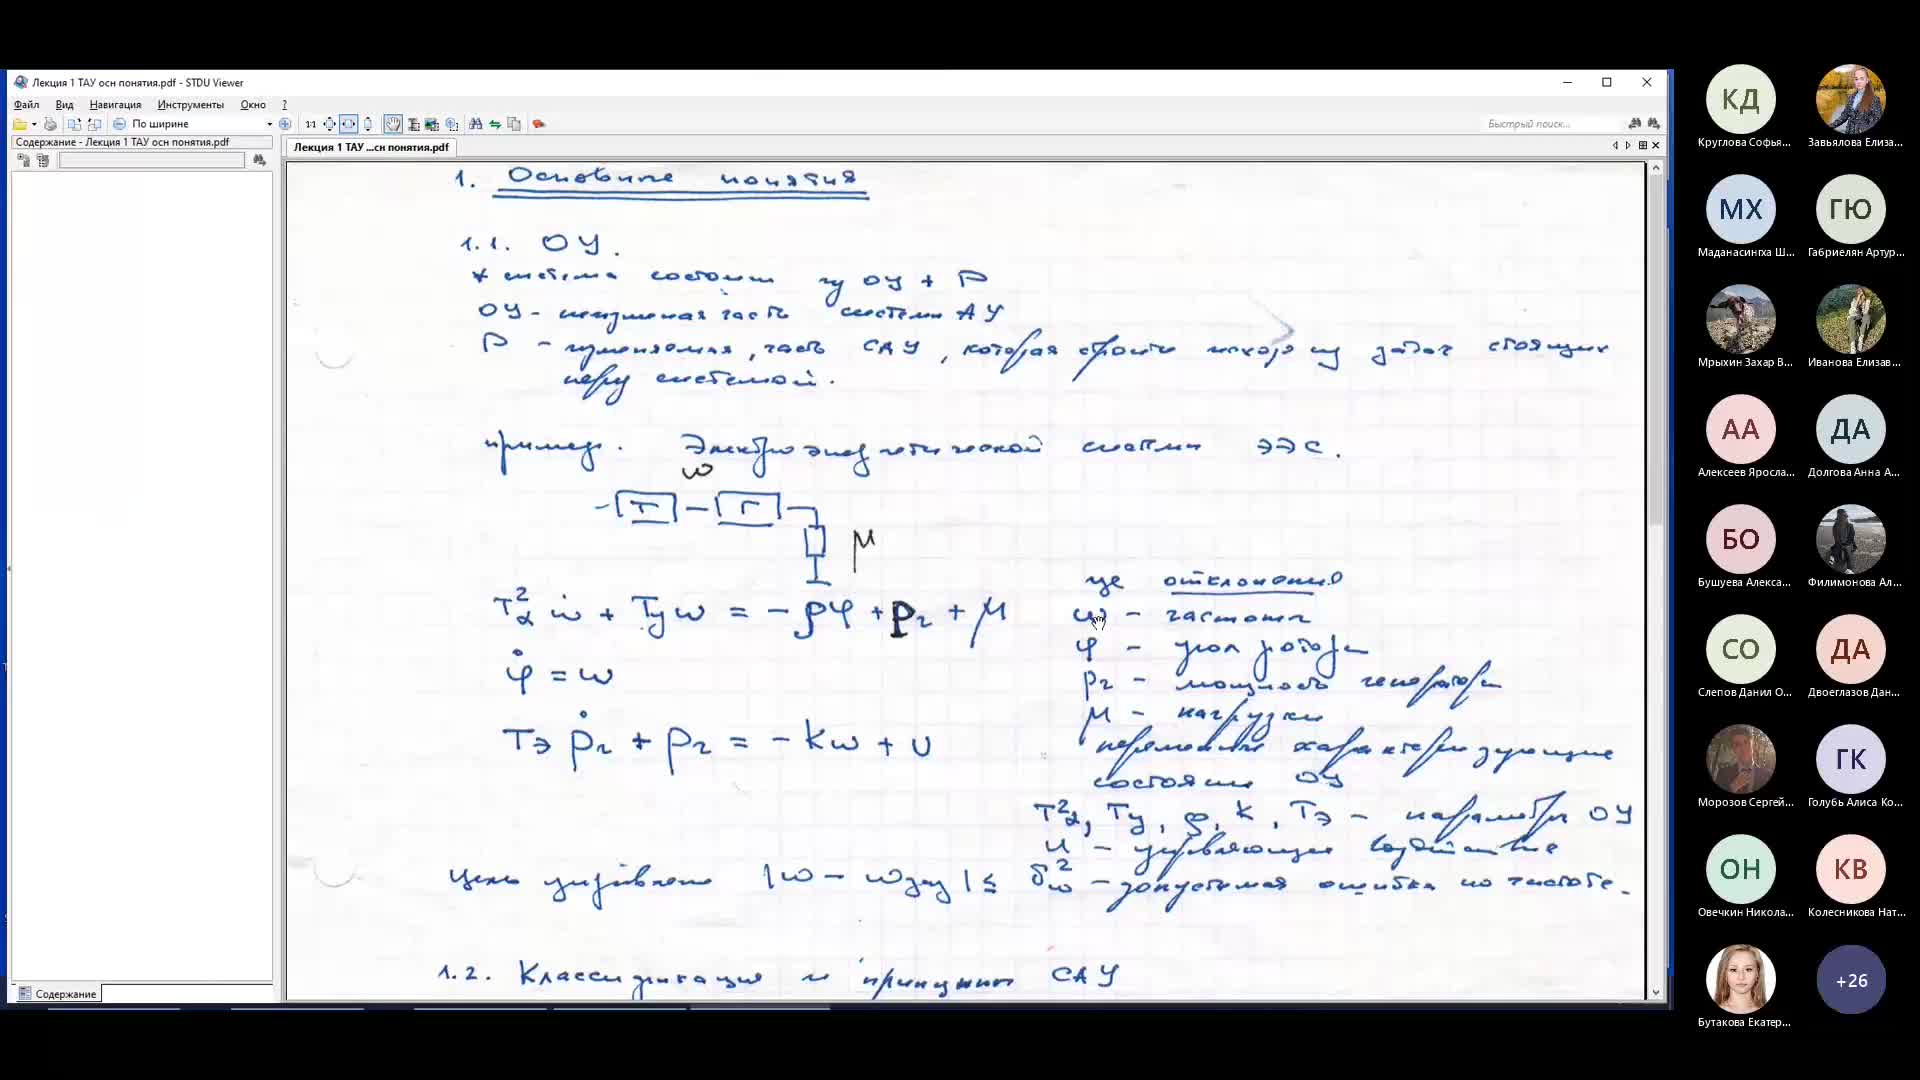 Лекция 1 ТАУ осн понятия.pdf - STDU Viewer
Файл Вид Навигация Инструменты Окно ?
По ширине
1:1
Быстрый поиск...
Содержание - Лекция 1 ТАУ осн понятия.pdf
Лекция 1 ТАУ ...сн понятия.pdf
1. Основные понятия
1.1. ОУ.
* система состоит из ОУ + Р
ОУ - неизменная часть системы АУ
Р - изменяемая, часть САУ, которая строится исходя из задач стоящих
перед системой.
пример. Электроэнергетической системы ЭЭС.
ω
Т Г
μ
T²α ω̇ + Tyω = -ρφ + pг + μ
φ̇ = ω
Tэ ṗг + pг = -kω + u
где отклонения
ω - частота
φ - угол ротора
pг - мощность генератора
μ - нагрузки
переменные характеризующие
состояние ОУ
T²α, Ty, ρ, k, Tэ - параметры ОУ
u - управляющее воздействие
цель управления |ω - ωзад| ≤ δ²ω - допустимая ошибка по частоте.
1.2. Классификация и принципы САУ
Содержание
КД
Круглова Софья...
Завьялова Елиза...
МХ
Маданасингха Ш...
ГЮ
Габриелян Артур...
Мрыхин Захар В...
Иванова Елизав...
АА
Алексеев Яросла...
ДА
Долгова Анна А...
БО
Бушуева Алекса...
Филимонова Ал...
СО
Слепов Данил О...
ДА
Двоеглазов Дан...
Морозов Сергей...
ГК
Голубь Алиса Ко...
ОН
Овечкин Никола...
КВ
Колесникова Нат...
Бутакова Екатер...
+26